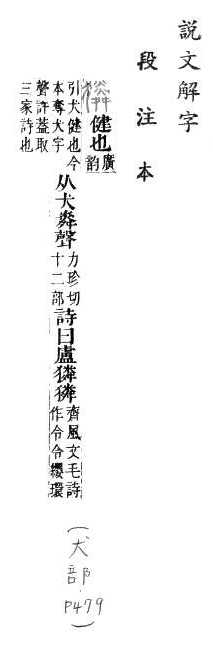 說文解字
段注本
健也廣韵
引犬健也今本奪犬字从犬粦聲力珍切十二部詩曰盧獜獜齊風文毛詩作令令纓環
聲許葢取三家詩也
(犬部.P479)